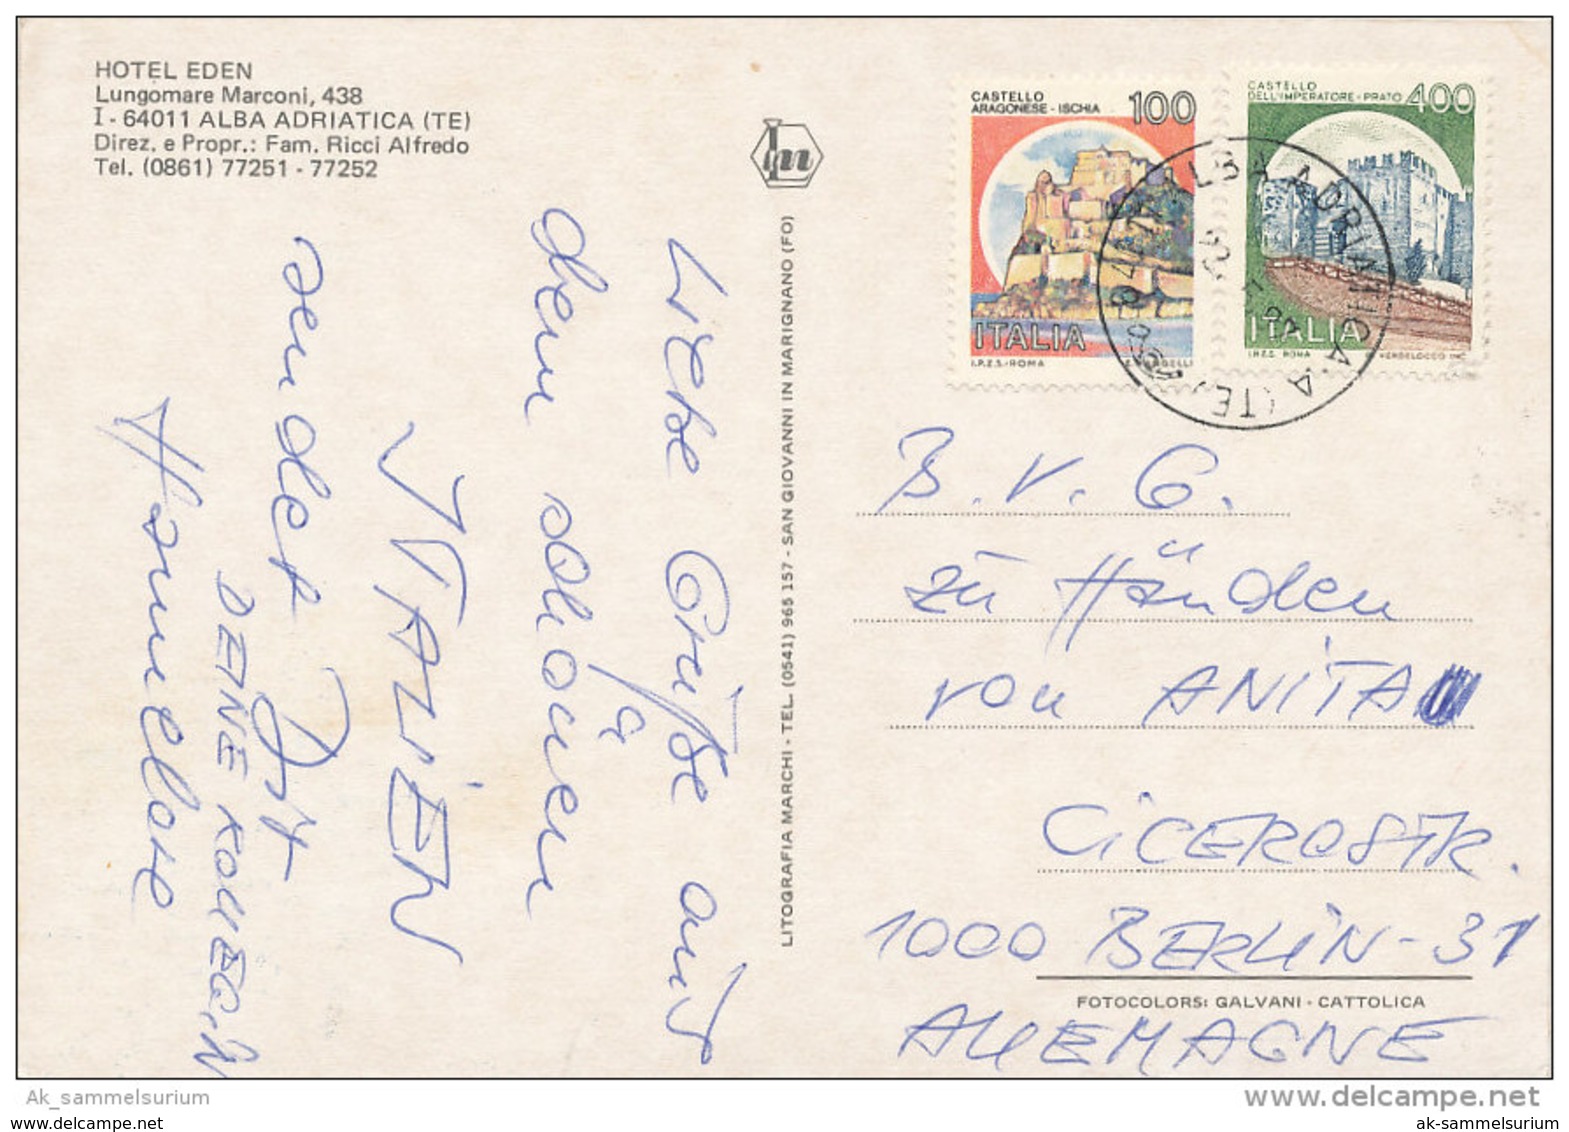 HOTEL EDEN
Lungomare Marconi, 438
I - 64011 ALBA ADRIATICA (TE)
Direz. e Propr.: Fam. Ricci Alfredo
Tel. (0861) 77251 - 77252
Liebe Grüße aus
dem schönen
ITALIEN
sendet Dir
DEINE KOLLEGIN
Hannelore
LITOGRAFIA MARCHI - TEL. (0541) 965 157 - SAN GIOVANNI IN MARIGNANO (FO)
CASTELLO
ARAGONESE - ISCHIA 100
ITALIA
I.P.Z.S. - ROMA
CASTELLO
DELL'IMPERATORE - PRATO 400
ITALIA
I.P.Z.S. ROMA VERDELOCCO INC.
ALBA ADRIATICA (TE)
B.V.G.
zu Händen
von ANITA
CICEROSTR.
1000 BERLIN - 31
FOTOCOLORS: GALVANI - CATTOLICA
ALLEMAGNE
Ak_sammelsurium
www.delcampe.net
ak-sammelsurium
ak-sammelsurium